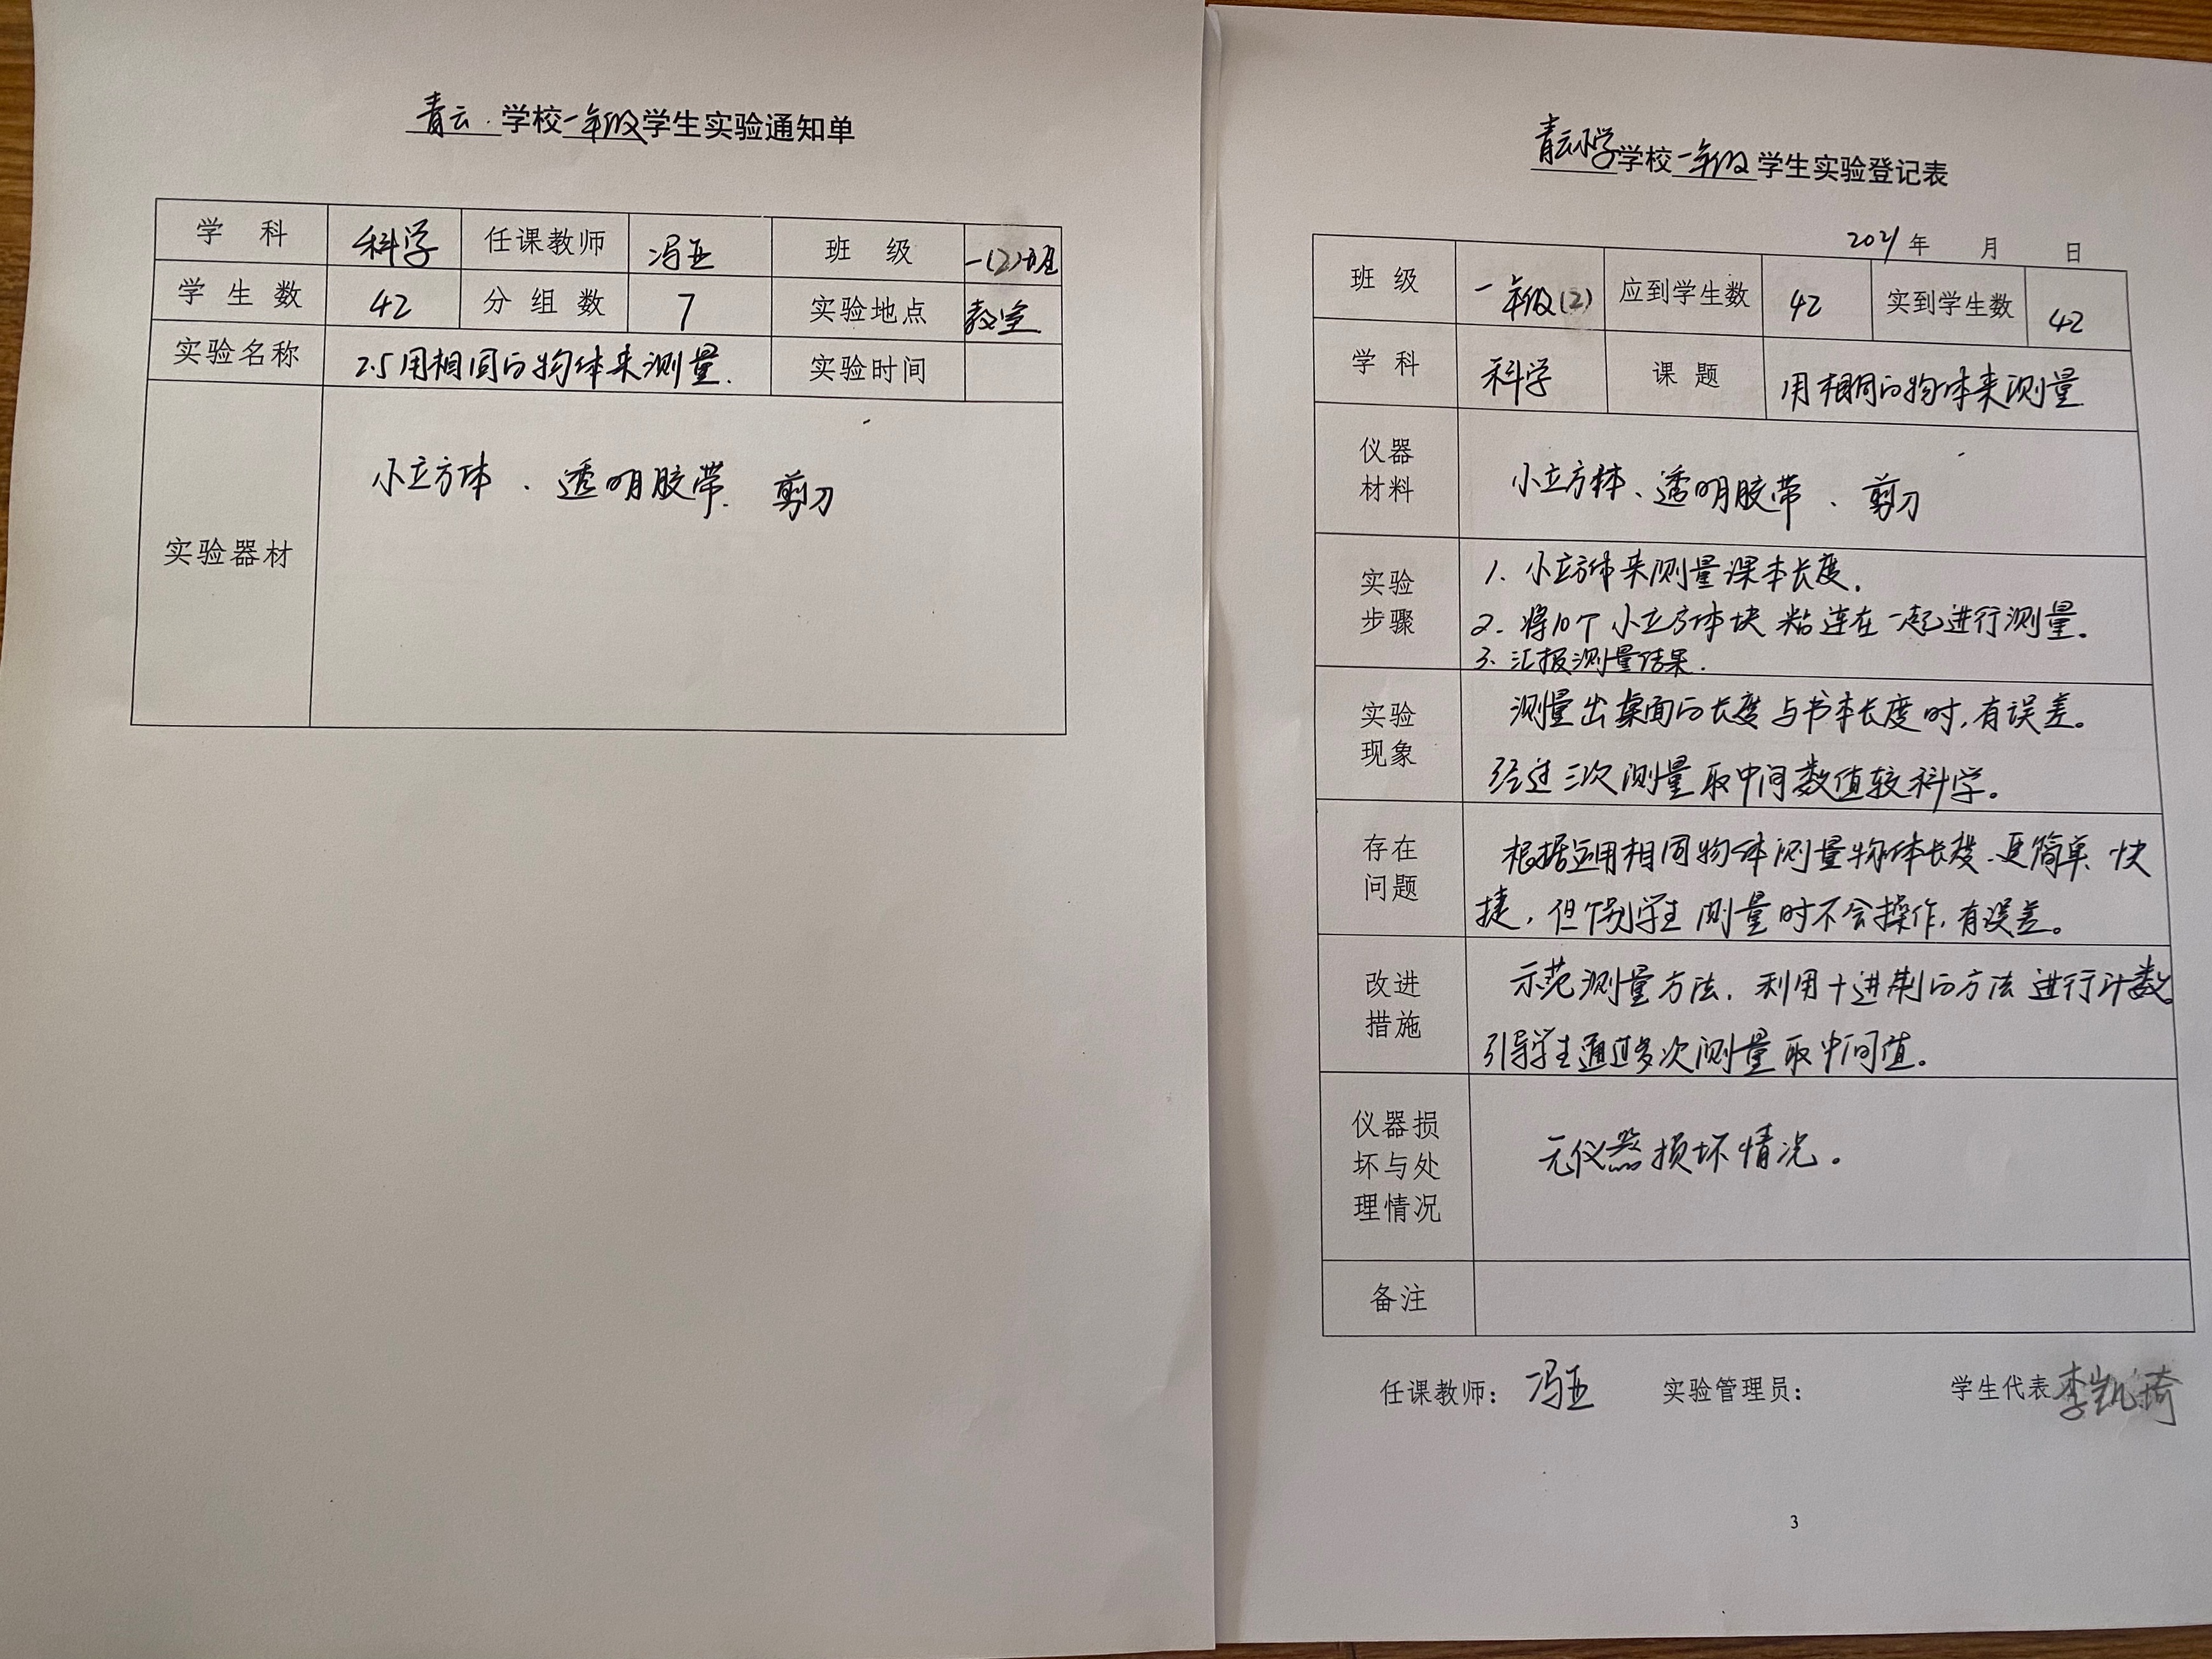 青云学校一年级学生实验通知单
学科 科学 任课教师 冯亚 班级 一(2)班
学生数 42 分组数 7 实验地点 教室
实验名称 2.5用相同的物体来测量. 实验时间
实验器材 小立方体、透明胶带. 剪刀
青云小学学校一年级学生实验登记表
2021年 月 日
班级 一年级(2) 应到学生数 42 实到学生数 42
学科 科学 课题 用相同的物体来测量
仪器材料 小立方体、透明胶带、剪刀
实验步骤
1. 小立方体来测量课本长度.
2. 将10个小立方体块粘连在一起进行测量.
3. 汇报测量结果.
实验现象
测量出桌面的长度与书本长度时,有误差。
经过三次测量取中间数值较科学。
存在问题
根据运用相同物体测量物体长度、更简单、快
捷,但个别学生测量时不会操作,有误差。
改进措施
示范测量方法,利用十进制的方法进行计数。
引导学生通过多次测量取中间值。
仪器损坏与处理情况
无仪器损坏情况。
备注
任课教师: 冯亚 实验管理员: 学生代表 李凯琦
3